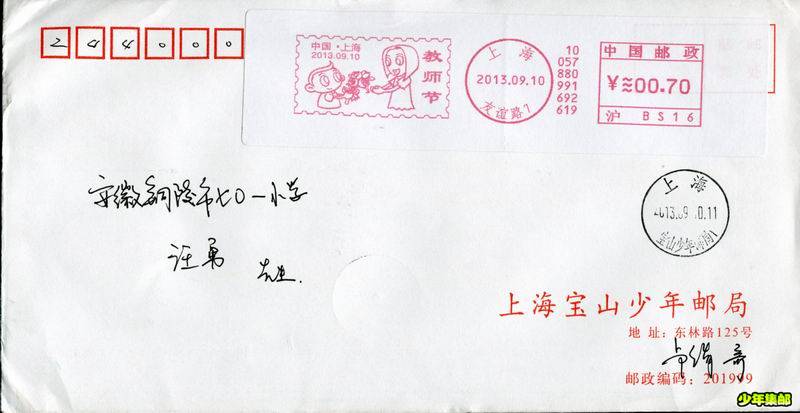 244000
中国·上海
2013.09.10
教师节
上海
2013.09.10
友谊路7
10
057
880
991
692
619
中国邮政
¥≈00.70
沪 BS16
安徽铜陵市七〇一小学
汪勇 先生
上海
2013.09.10.11
宝山少年邮局1
上海宝山少年邮局
地址：东林路125号
邮政编码：201999
少年集邮